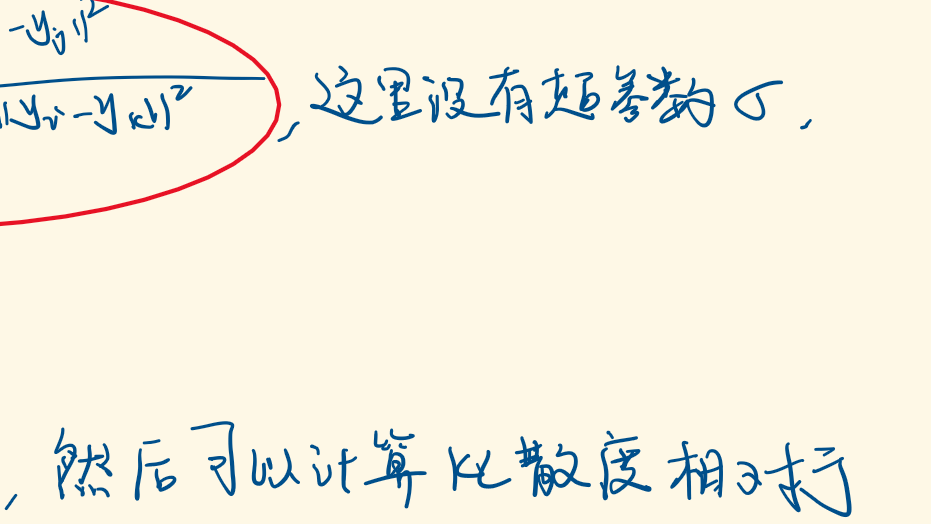 -y_j||²
||y_i-y_k||², 这里没有超参数σ,
, 然后可以计算KL散度相对于